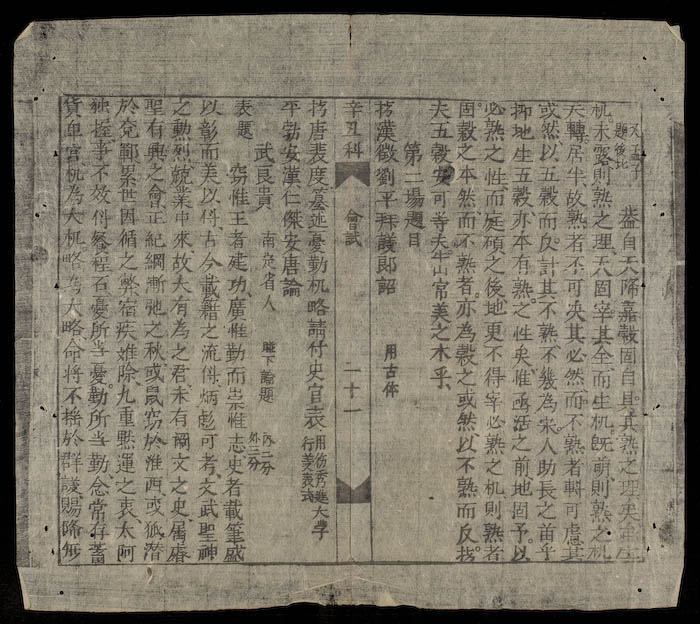 文王章
題後比
蓋自天降嘉穀固自具其熟之理矣
机未露則熟之理天固宰其全而生机既萌則熟之机
天轉居半故熟者不可决其必然而不熟者輒可慮其
或然以五穀而反計其不熟不幾為宋人助長之苗乎
抑地生五穀亦本有熟之性矣惟函活之前地固予以
必熟之性而庭碩之後地更不得宰必熟之机則熟者
固穀之本然而不熟者亦為穀之或然以不熟而反
夫五穀安可等夫牛山常美之木乎
第二場題目
擬漢徵劉平拜議郎詔
用古体
辛丑科
會試
二十一
擬唐裴度墓述憂勤机略請付史官表
平勃安漢仁傑安唐論
武良貴
南定省人
表題
竊惟王者建功廣惟勤而崇惟志史者載筆盛
以彰而美以傳古今載籍之流傳炳彪可考文武聖神
之勳烈兢業中來故大有為之君未有闕文之史屬
聖有興之會正紀綱漸弛之秋或鼠竊於淮西或狐潜
於兗鄆累世因循之弊宿疾难除九重默運之衷太阿
独握事不效傳餐程石憂所當憂勤所當勤念常存
貨自官机為大机略為大略命將不搖於群議賜